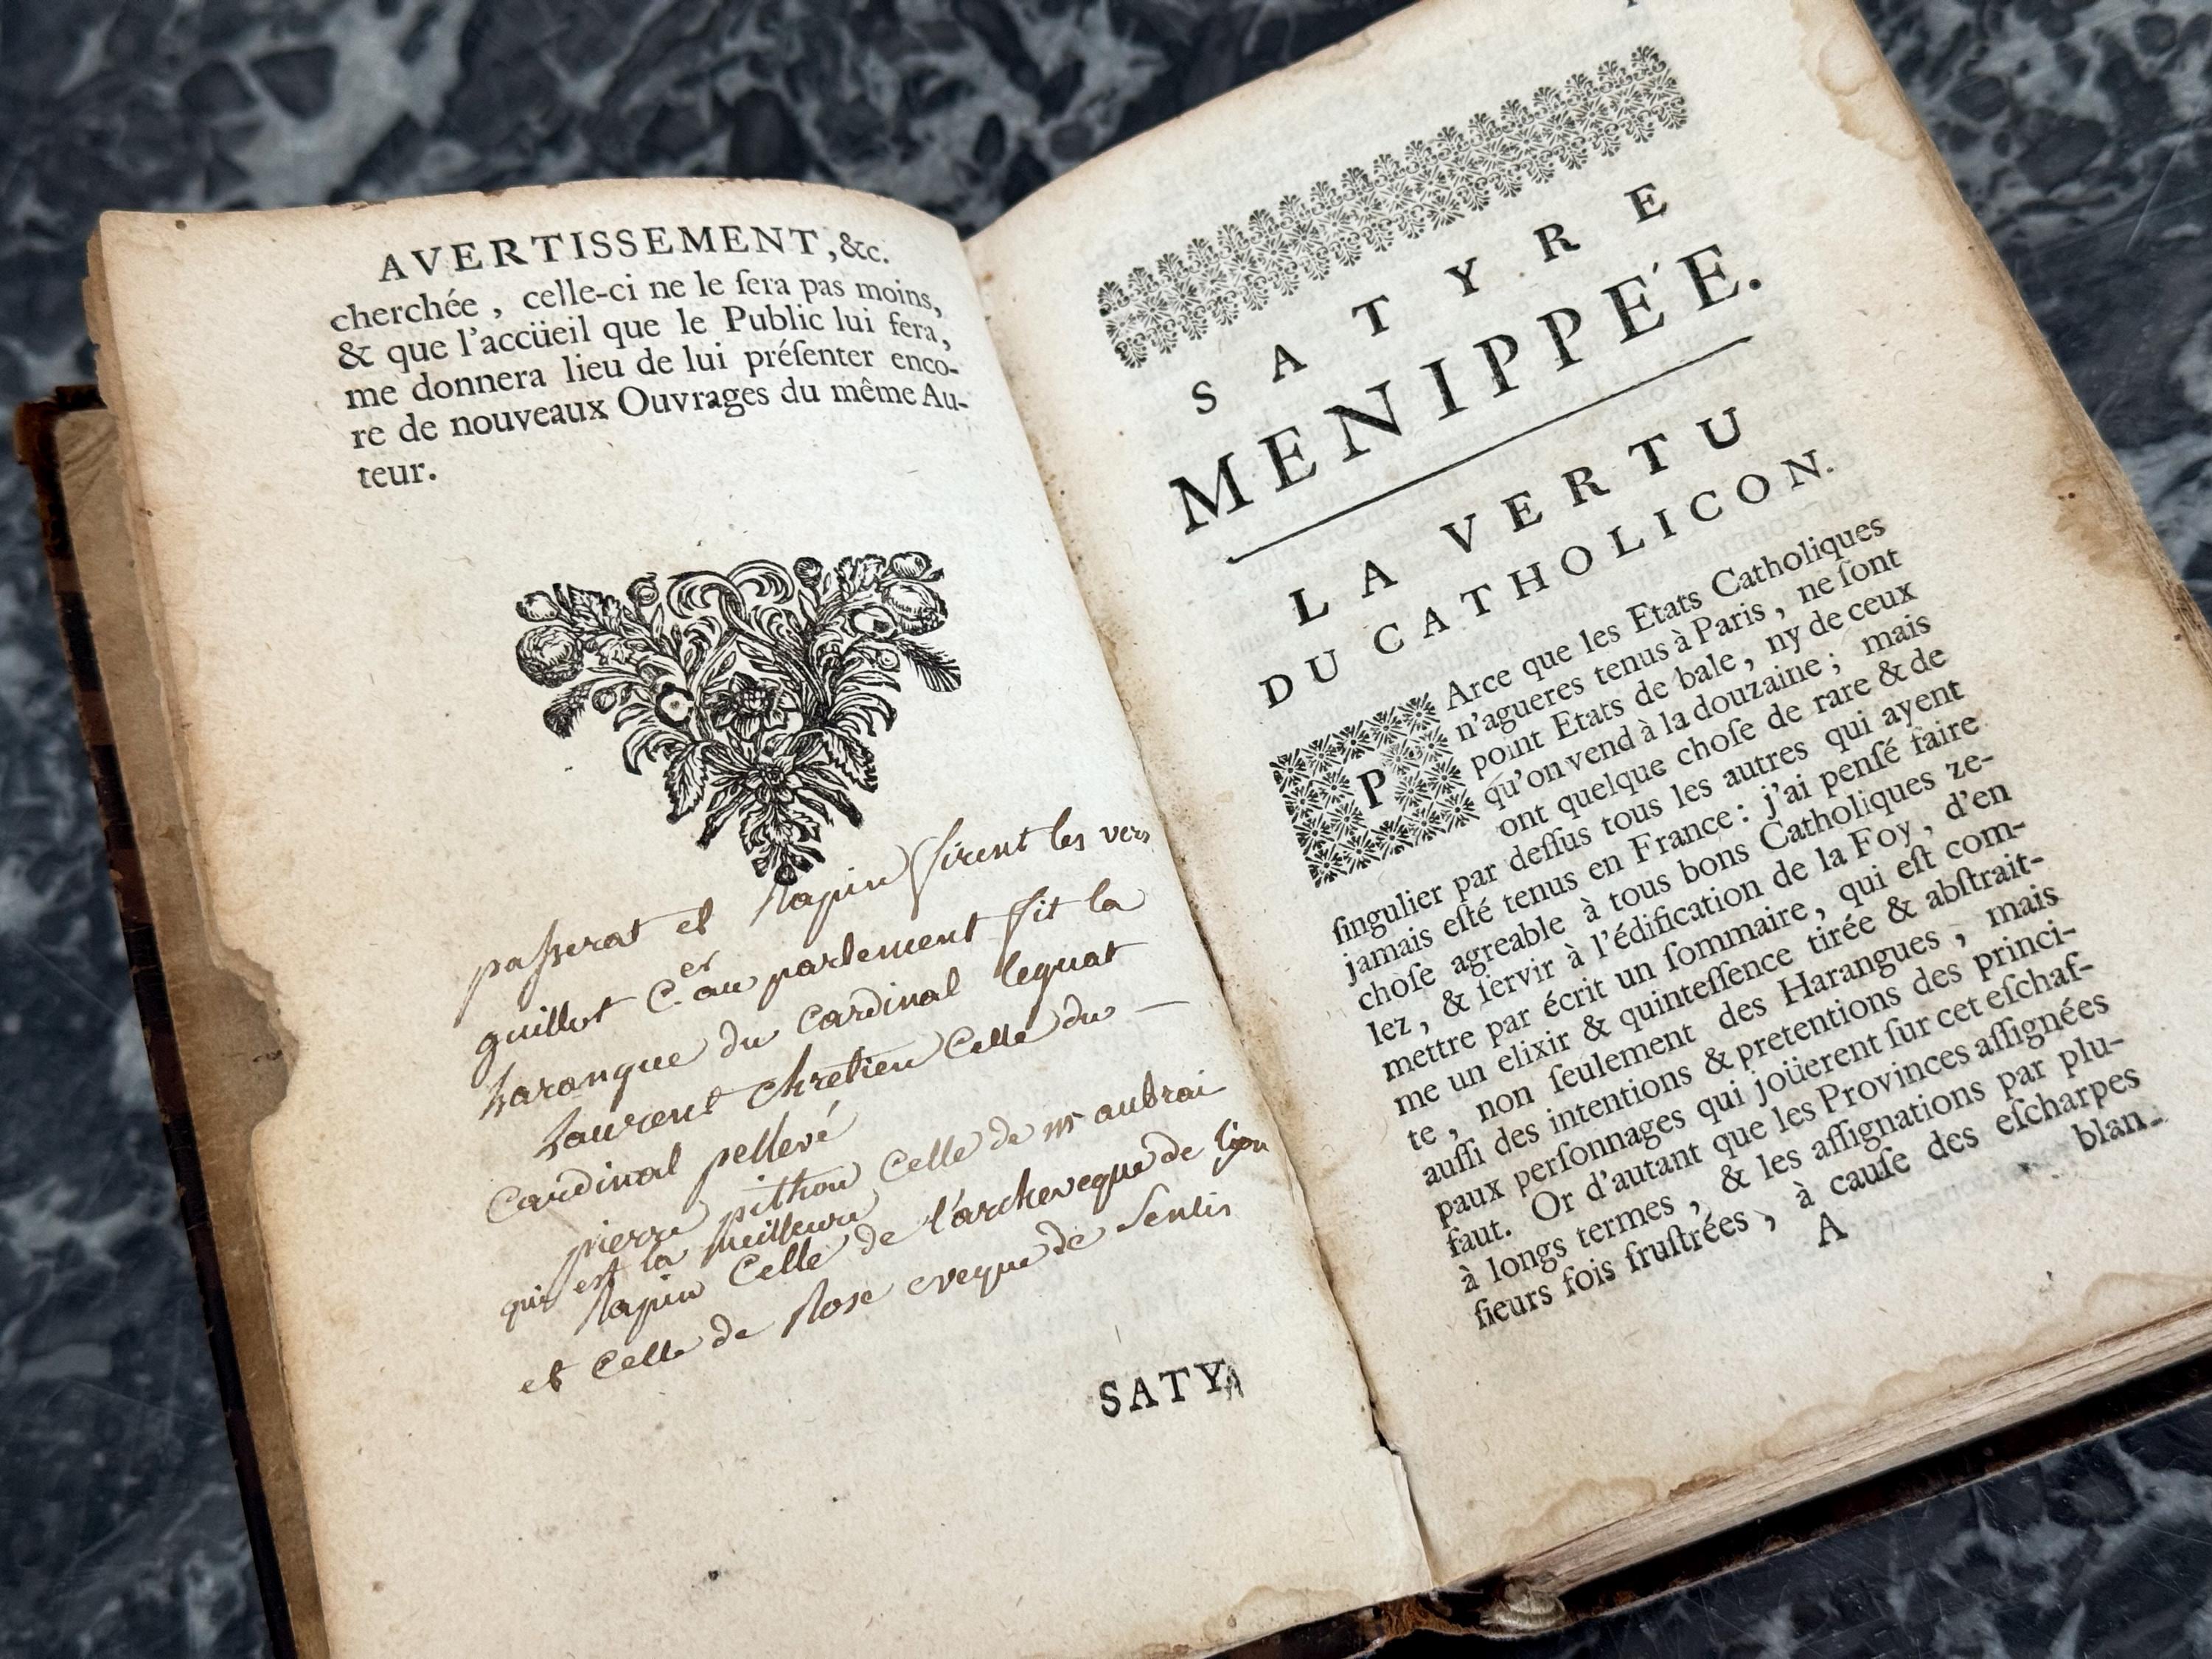 AVERTISSEMENT, &c.
cherchée, celle-ci ne le ſera pas moins,
& que l'accüeil que le Public lui fera,
me donnera lieu de lui préſenter enco-
re de nouveaux Ouvrages du même Au-
teur.
passerat et Rapin firent les vers
guillot C.er au parlement fit la
harangue du cardinal legat
Laurent chretien celle du —
Cardinal pellevé
pierre pithou celle de mr aubrai
qui est la meilleure
Rapin celle de l'archeveque de lyon
et celle de Rose eveque de Senlis
SATY
SATYRE
MENIPPÉE.
LA VERTU
DU CATHOLICON.
PArce que les Etats Catholiques
n'agueres tenus à Paris, ne ſont
point Etats de bale, ny de ceux
qu'on vend à la douzaine; mais
ont quelque choſe de rare & de
ſingulier par deſſus tous les autres qui ayent
jamais eſté tenus en France: j'ai penſé faire
choſe agreable à tous bons Catholiques ze-
lez, & ſervir à l'édification de la Foy, d'en
mettre par écrit un ſommaire, qui eſt com-
me un elixir & quinteſſence tirée & abſtrait-
te, non ſeulement des Harangues, mais
auſſi des intentions & pretentions des princi-
paux perſonnages qui joüerent ſur cet eſchaf-
faut. Or d'autant que les Provinces aſſignées
à longs termes, & les aſſignations par plu-
ſieurs fois fruſtrées, à cauſe des eſcharpes
A
blan-